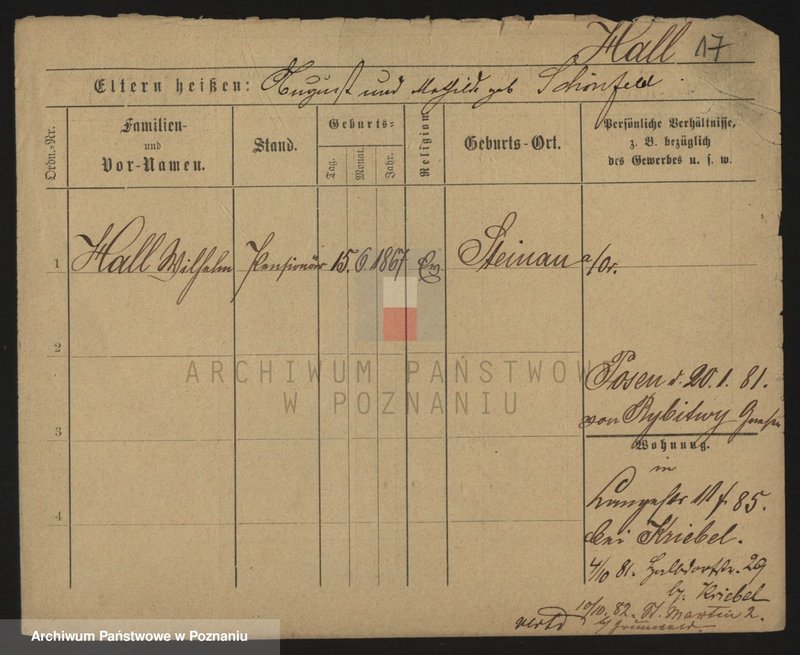 Hall 17
Eltern heißen: August und Mathilde geb Schönfeld
Ordn.-Nr.
Familien-
und
Vor-Namen.
Stand.
Geburts-
Tag.
Monat.
Jahr.
Religion
Geburts-Ort.
Persönliche Verhältnisse,
z. B. bezüglich
des Gewerbes u. s. w.
1 Hall Wilhelm Pensionär 15. 6 1867 Ev. Steinau a/Or.
2
3
4
Posen d. 20. 1. 81.
von Rybitwy Gnesen
Wohnung.
in
Langestr 11 f. 85.
bei Kriebel.
4/10 81. Halbdorfstr. 29
b. Kriebel
10/10. 82. St. Martin 2.
ARCHIWUM PAŃSTWOWE
W POZNANIU
Archiwum Państwowe w Poznaniu